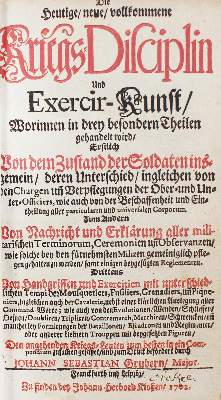 Die
Heutige/ neue/ vollkommene
Kriegs Disciplin
Und
Exercir-Kunst/
Worinnen in drey besondern Theilen
gehandelt wird/
Erstlich
Von dem Zustand der Soldaten ins-
gemein/ deren Unterschied/ ingleichen von
den Chargen uñ Verpflegungen der Ober- und Un-
ter-Officiers, wie auch von der Beschaffenheit und Ein-
theilung aller particularen und universalen Corporum.
Zum Andern
Von Nachricht und Erklärung aller mili-
tarischen Terminorum, Ceremonien uñ Observanzen,
wie solche bey den fürnehmsten Milizen gemeiniglich pfle-
gen gehalten zu werden/ samt einigen beygefügten Reglementen.
Drittens
Von Handgriffen und Exercitien mit unterschied-
lichen Tempi der Mousquetiers, Piquen, Grenadiers,
ingleichen auch der Cavalerie, nebst einer
Command-Worte; wie auch von den Evolutionen, Wenden, Schliessen/
Defiren, Doubliren, Tripliren, Contremarch, Marchiren/ Schwencken/
mancherley Formirungen der Bataillonen, Esquadrons und Regimenter/
oder anderer kleinen Trouppen mit beygefügten Figuren/
Den angehenden Kriegs-Leuten zum besten
zusammen gesuchet/ und zum Druck befördert durch
JOHANN SEBASTIAN Gruber/ Major.
Franckfurt und Leipzig/
Zu finden bey Johann Herbord Klosen/ 1702.